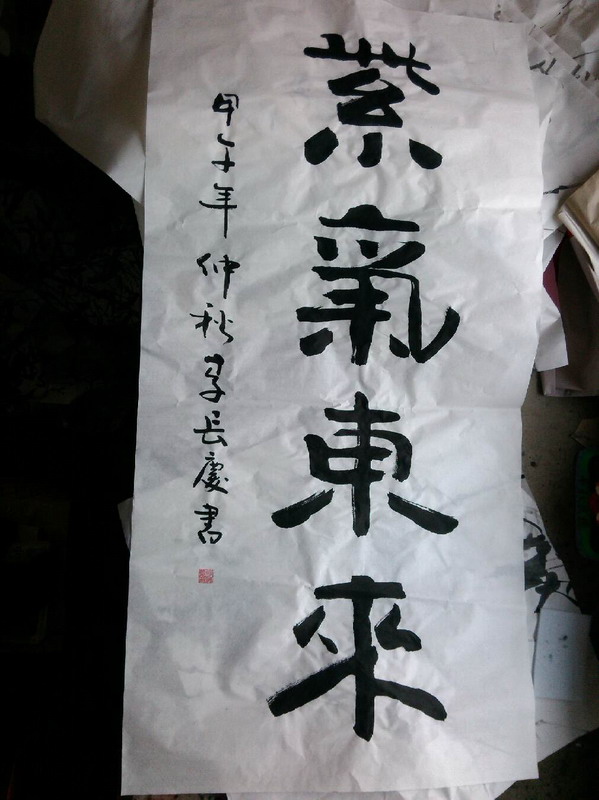 紫氣東來
甲午年仲秋李長慶書